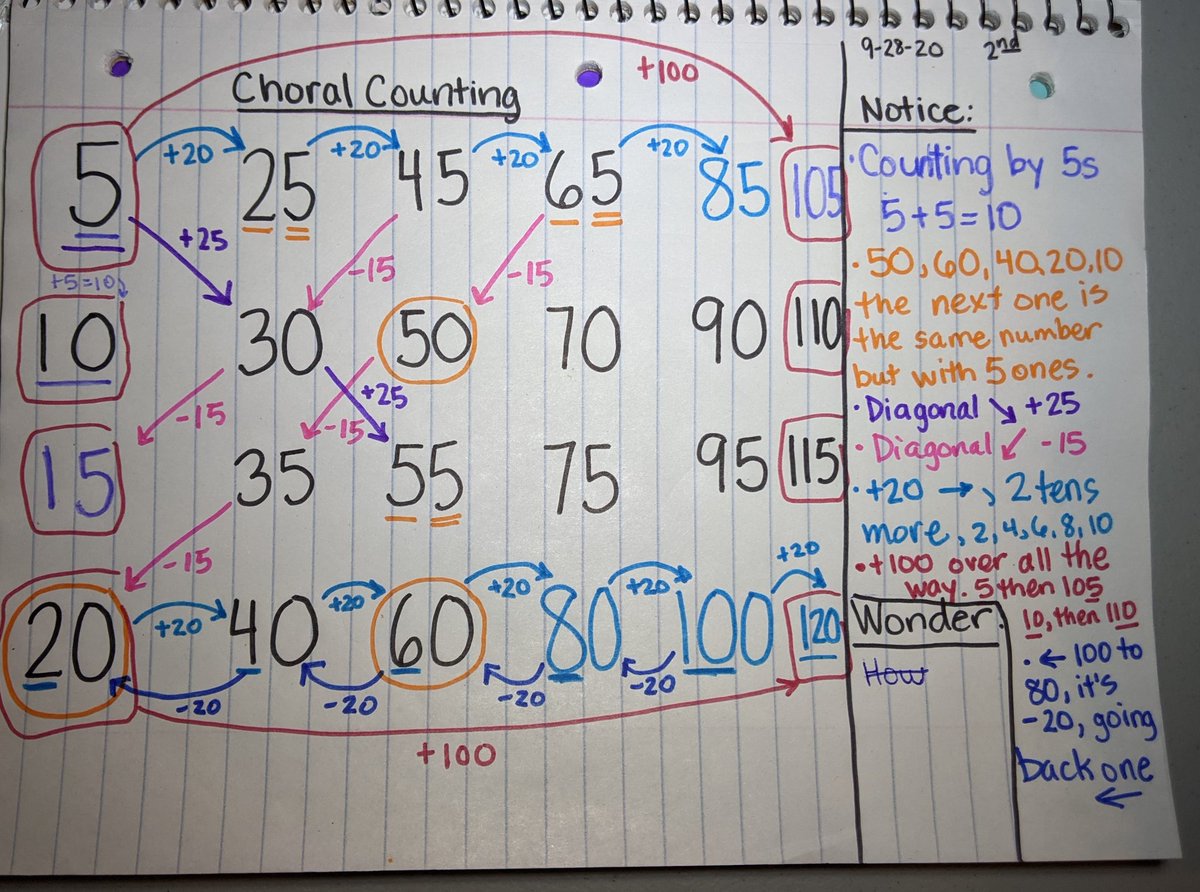 9-28-20 2nd
+100
Choral Counting
+20 +20 +20 +20
5 25 45 65 85 105
+25 -15 -15
+5=10
10 30 50 70 90 110
-15 +25 -15
15 35 55 75 95 115
-15
+20 +20 +20 +20 +20
20 40 60 80 100 120
-20 -20 -20 -20
+100
Notice:
·Counting by 5s
5+5=10
·50,60,40,20,10
the next one is
the same number
but with 5 ones.
·Diagonal ↘ +25
·Diagonal ↙ -15
·+20 →, 2 tens
more, 2,4,6,8,10
•+100 over all the
way. 5 then 105
10, then 110
·← 100 to
80, it's
-20, going
back one
←
Wonder:
How